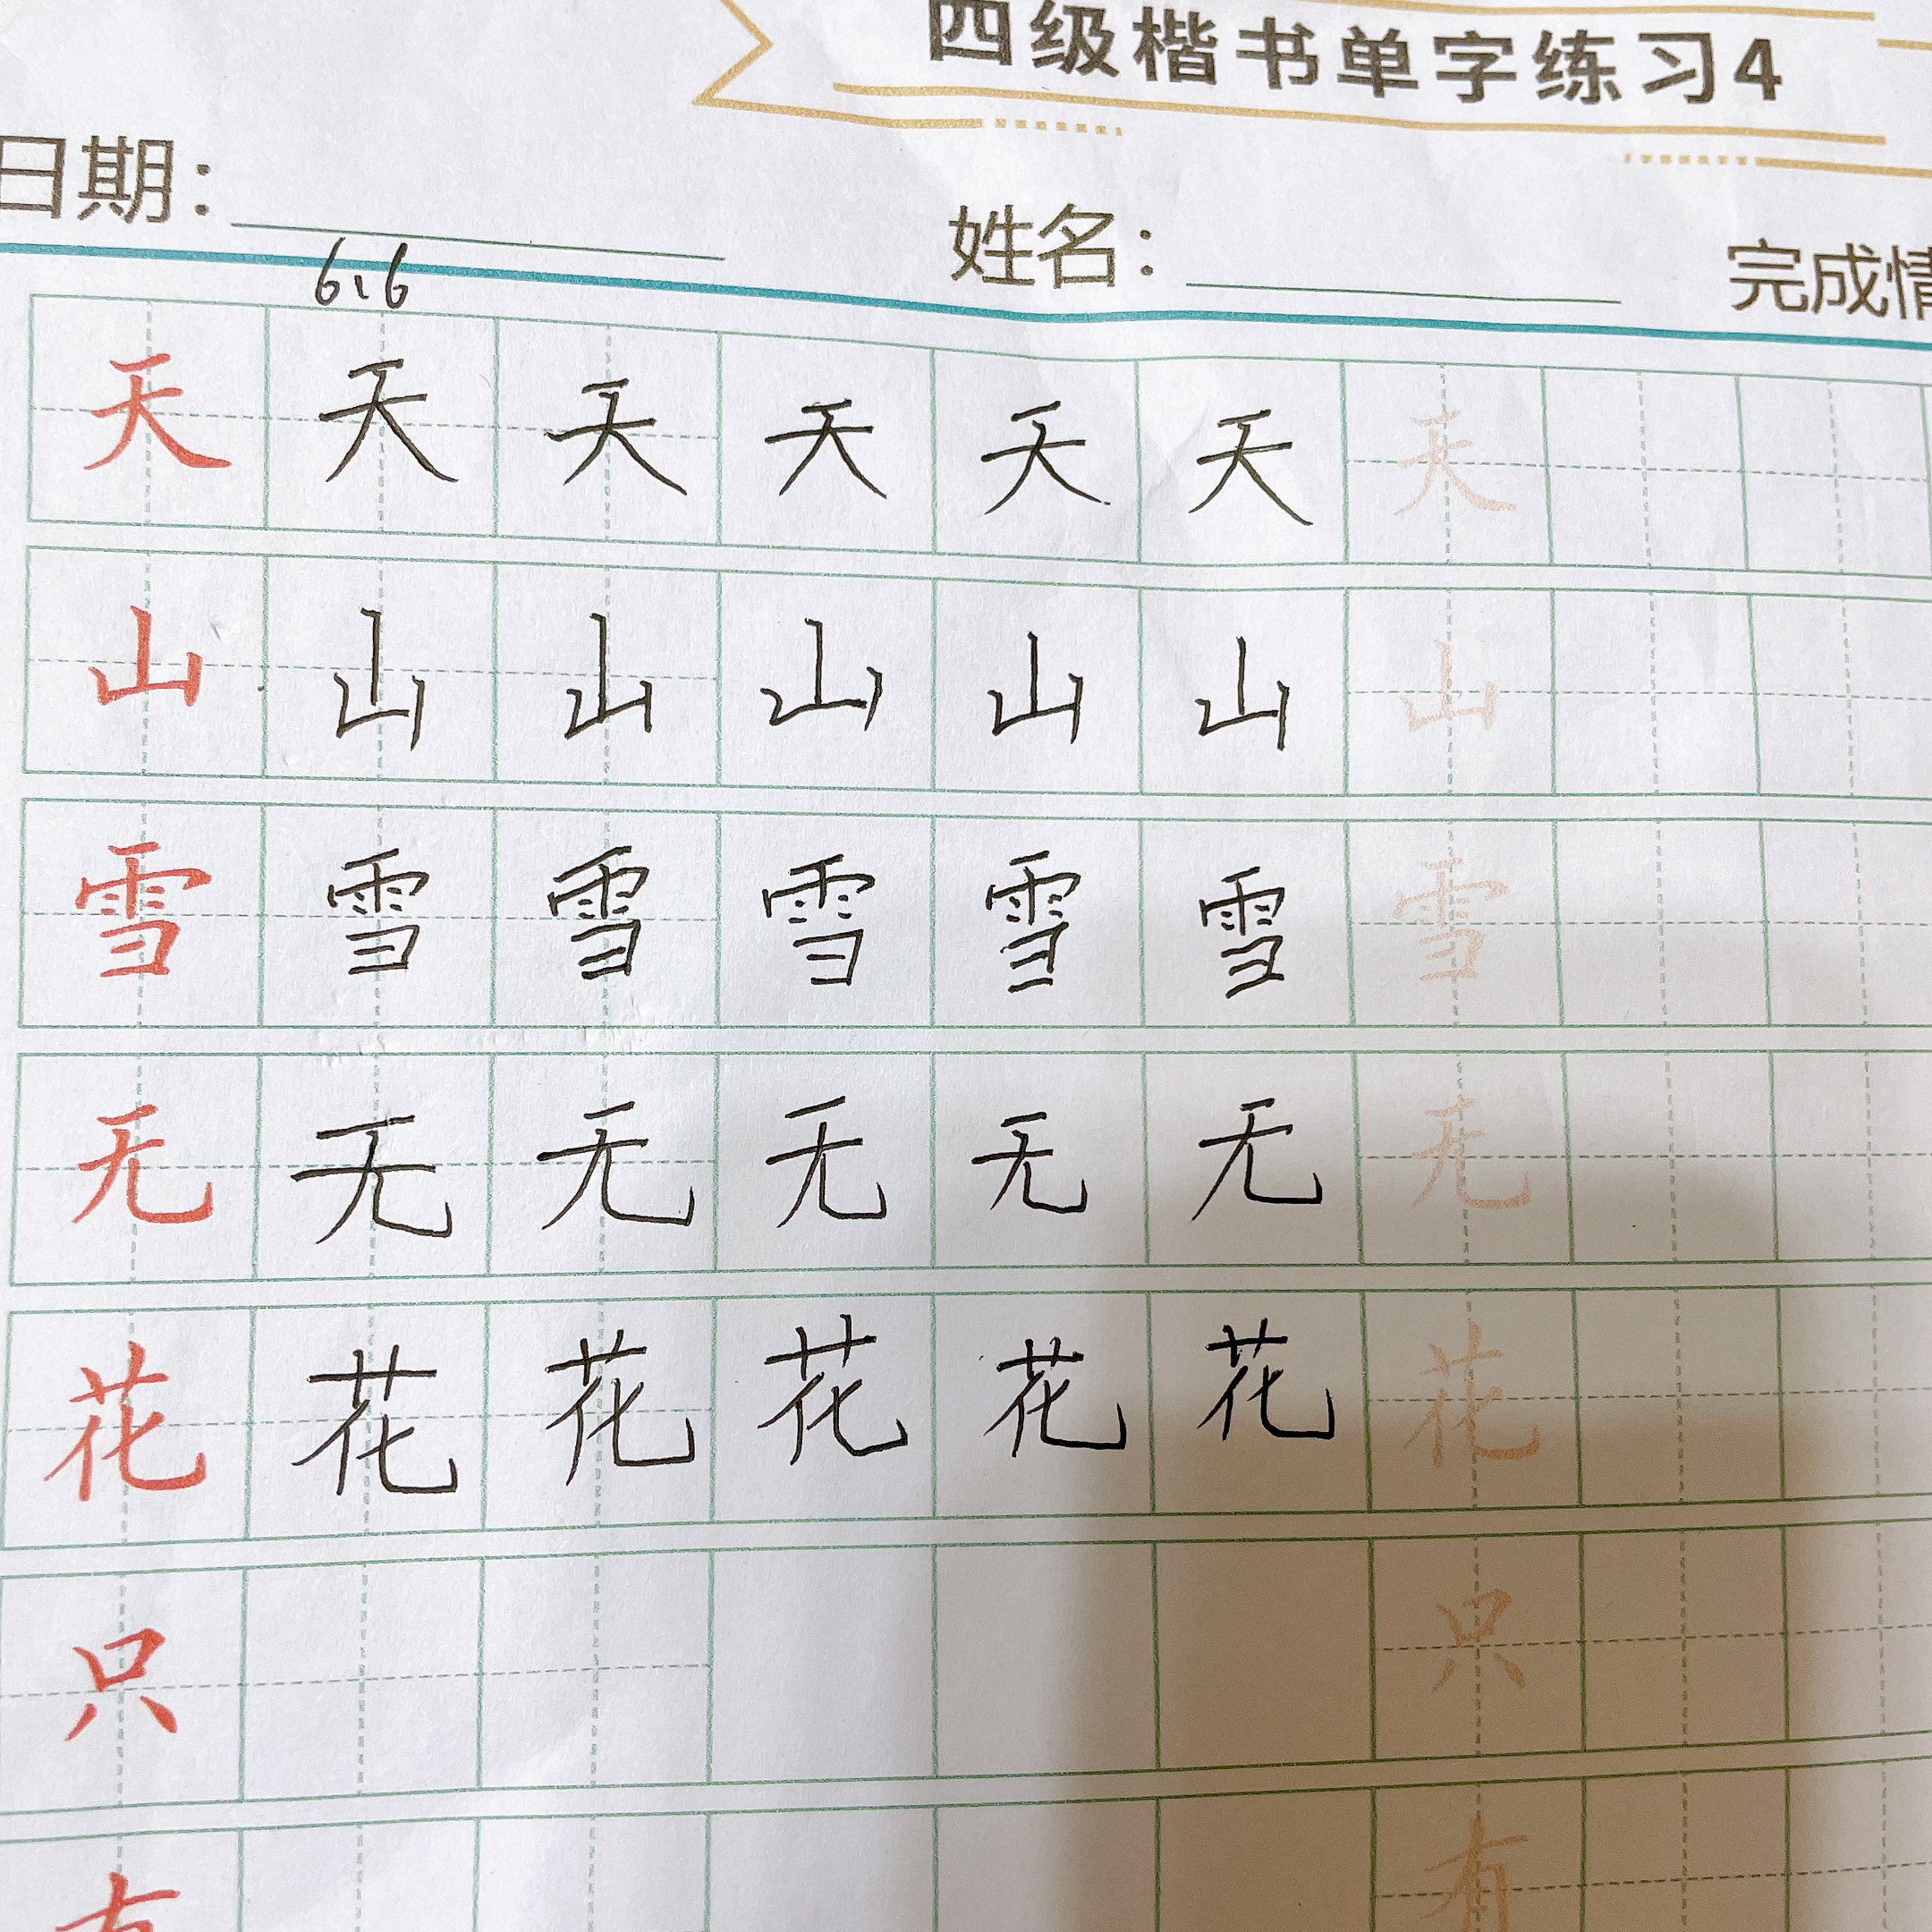 四级楷书单字练习4
日期： 姓名： 完成情
6.6
天 天 天 天 天 天 天
山 山 山 山 山 山 山
雪 雪 雪 雪 雪 雪 雪
无 无 无 无 无 无 无
花 花 花 花 花 花 花
只 只
有 有